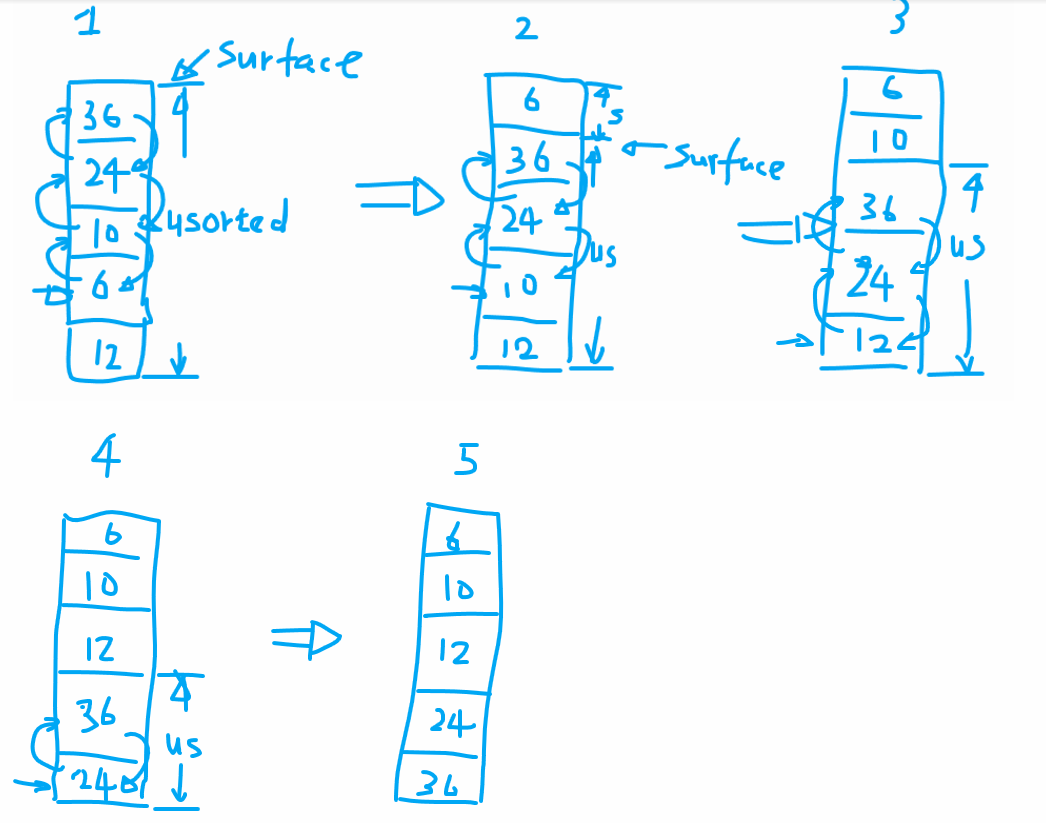 1
2
3
Surface
36
24
10
6
12
usorted
6
s
36
24
10
12
Surface
us
6
10
36
24
12
us
4
5
6
10
12
36
24
us
6
10
12
24
36